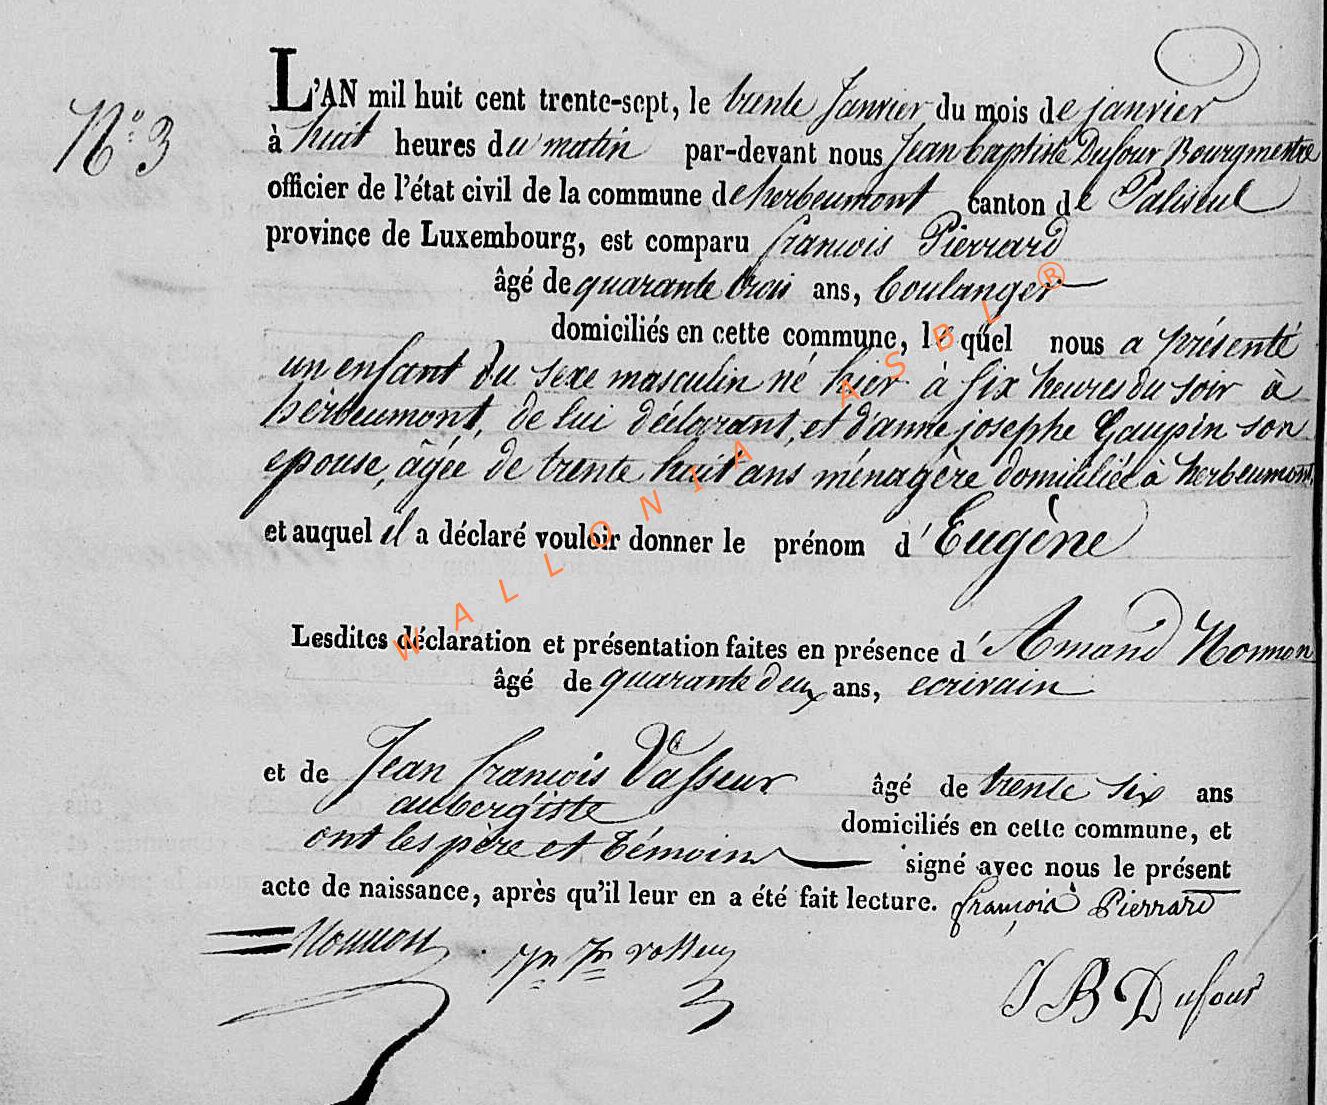 N° 3
L'AN mil huit cent trente-sept, le trente Janvier du mois de janvier
à huit heures du matin par-devant nous Jean baptiste Dufour Bourgmestre
officier de l'état civil de la commune de herbeumont canton de Paliseul
province de Luxembourg, est comparu françois Pierrard
âgé de quarante trois ans, boulanger
domiciliés en cette commune, le quel nous a présenté
un enfant du sexe masculin né hier à six heures du soir à
herbeumont, de lui déclarant, et d'anne josephe Gaupin son
epouse, âgée de trente huit ans ménagère domiciliée à herbeumont,
et auquel il a déclaré vouloir donner le prénom d'Eugène
Lesdites déclaration et présentation faites en présence d'Amand Nonnon
âgé de quarante deux ans, ecrivain
et de Jean françois Vasseur âgé de trente six ans
aubergiste domiciliés en cette commune, et
ont les père et témoins signé avec nous le présent
acte de naissance, après qu'il leur en a été fait lecture. françois Pierrard
Nonnon Jn Fr vasseur
J B Dufour
WALLONIA ASBL ®